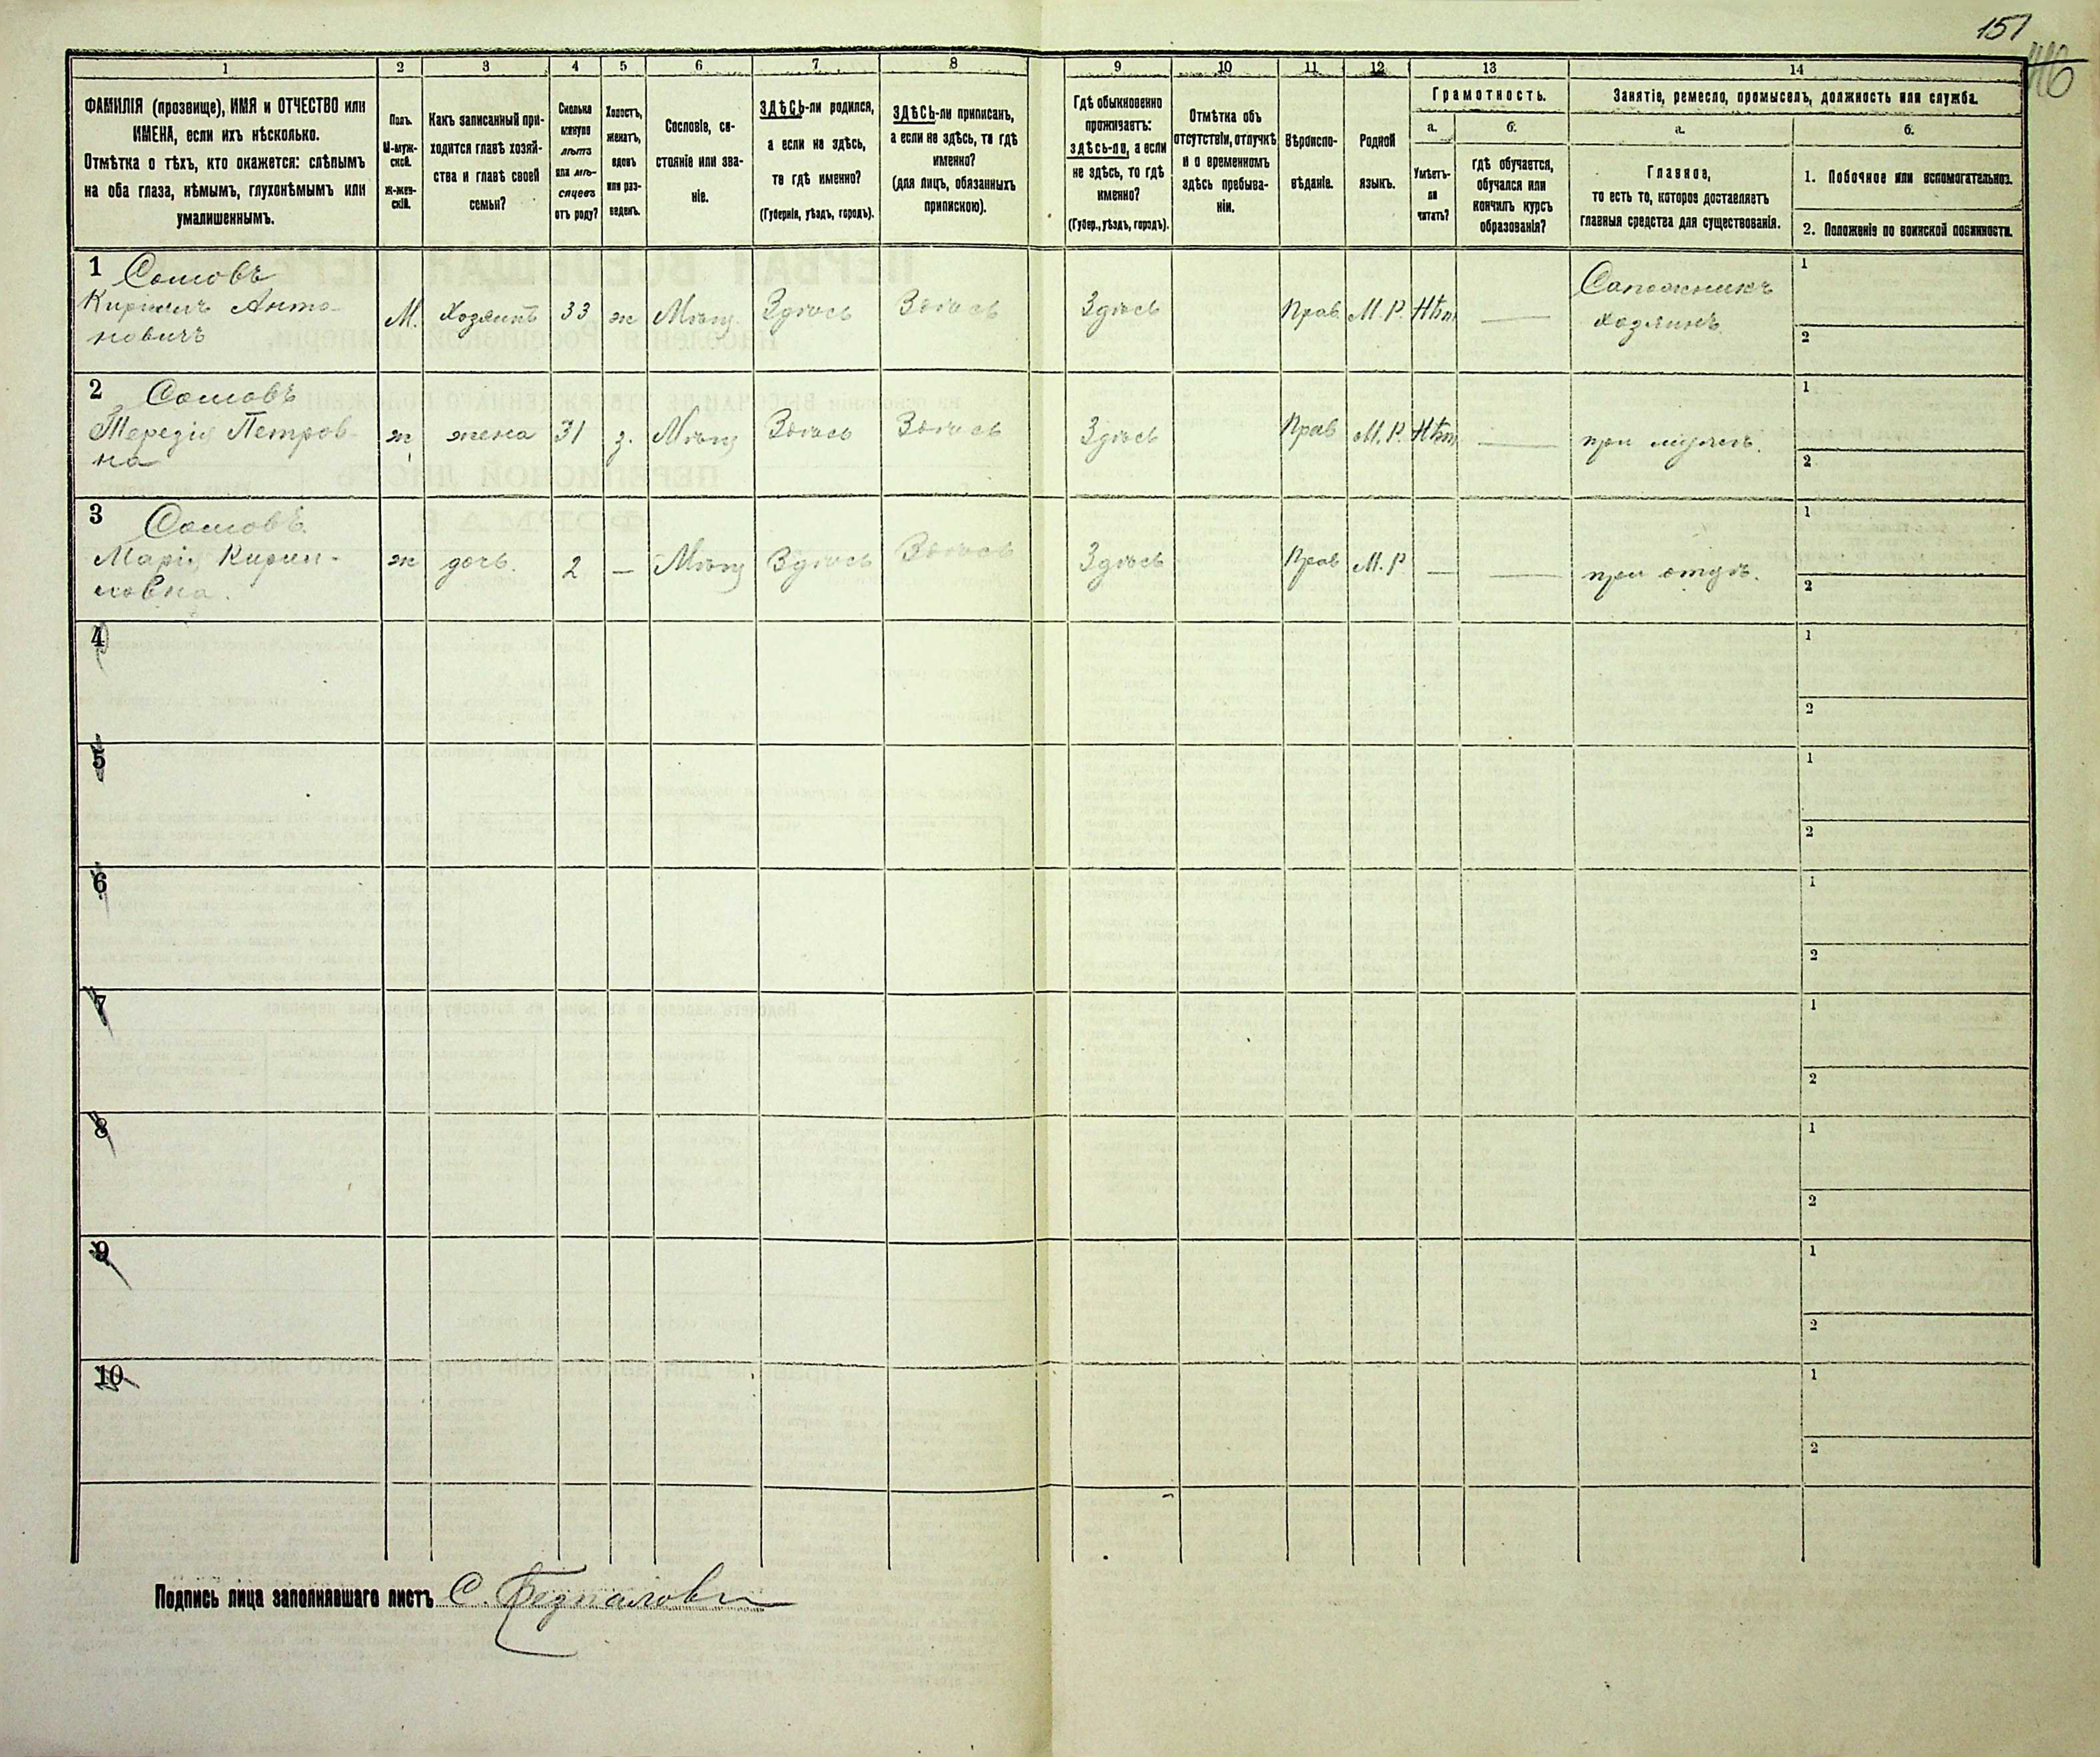 151
1 2 3 4 5 6 7 8 9 10 11 12 13 14
ФАМИЛІЯ (прозвище), ИМЯ и ОТЧЕСТВО или
ИМЕНА, если ихъ нѣсколько.
Отмѣтка о тѣхъ, кто окажется: слѣпымъ
на оба глаза, нѣмымъ, глухонѣмымъ или
умалишеннымъ.
Полъ.
М-муж-
ской.
Ж-жен-
скій.
Какъ записанный при-
ходится главѣ хозяй-
ства и главѣ своей
семьи?
Сколько
минуло
лѣтъ
или мѣ-
сяцевъ
отъ роду?
Холостъ,
женатъ,
вдовъ
или раз-
веденъ.
Сословіе, со-
стояніе или зва-
ніе.
ЗДѢСЬ-ли родился,
а если не здѣсь,
то гдѣ именно?
(Губернія, уѣздъ, городъ).
ЗДѢСЬ-ли приписан,
а если не здѣсь, то гдѣ
именно?
(для лицъ, обязанныхъ
припискою).
Гдѣ обыкновенно
проживаетъ:
здѣсь-ли, а если
не здѣсь, то гдѣ
именно?
(Губер., уѣздъ, городъ).
Отмѣтка объ
отсутствіи, отлучкѣ
и о временномъ
здѣсь пребыва-
ніи.
Вѣроиспо-
вѣданіе.
Родной
языкъ.
Грамотность.
а.
Умѣетъ-
ли
читать?
б.
гдѣ обучается,
обучался или
кончилъ курсъ
образованія?
Занятіе, ремесло, промыселъ, должность или служба.
а.
Главное,
то есть то, которое доставляетъ
главныя средства для существованія.
б.
1. Побочное или вспомогательное.
2. Положеніе по воинской повинности.
1 Сомовъ
Кирилъ Анто-
новичъ
М. Хозяинъ 33 ж Мѣщ. Здѣсь Здѣсь Здѣсь Прав. М.Р. Нѣт —
Сапожникъ
хозяинъ.
1
2
2 Сомовъ
Терезія Петров-
на
ж жена 31 з. Мѣщ Здѣсь Здѣсь Здѣсь Прав М.Р. Нѣт — при мужѣ.
1
2
3 Сомовъ.
Марія Кирил-
ловна.
ж дочь. 2 — Мѣщ Здѣсь Здѣсь Здѣсь Прав М.Р. — — при отцѣ.
1
2
4
1
2
5
1
2
6
1
2
7
1
2
8
1
2
9
1
2
10
1
2
Подпись лица заполнявшаго листъ С.